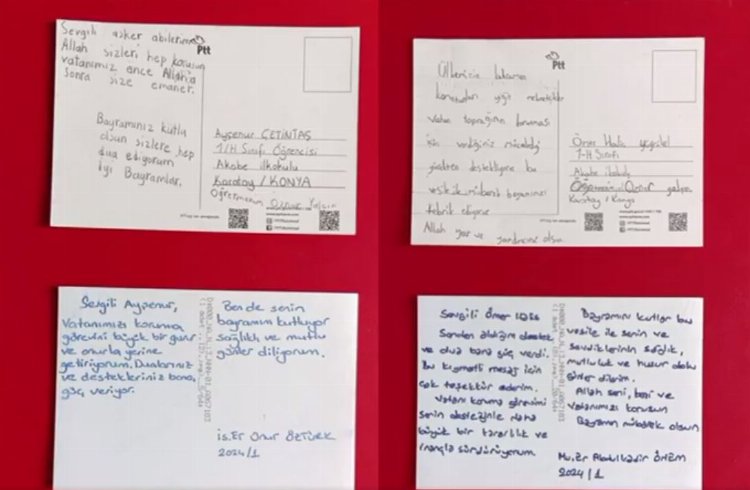 Sevgili asker abilerime
Allah sizleri hep korusun
vatanımız önce Allah'a
sonra size emanet.
Bayramınız kutlu
olsun sizlere hep
dua ediyorum
iyi Bayramlar.
Ptt
Ayşenur ÇETİNTAŞ
1/H Sınıfı Öğrencisi
Akabe ilkokulu
Karatay / KONYA
Öğretmenim Öznur
Ülkemizin
yiğit mehmetçikler
vatan toprağının korunması
için verdiğiniz mücadeleyi
destekliyor bu
vesile ile mübarek bayramınızı
tebrik ediyorum
Allah yar ve yardımcınız olsun
Ptt
Ömer Halis
1-H Sınıfı
Akabe ilkokulu
Karatay / Konya
Sevgili Ayşenur,
Vatanımızı koruma
görevini büyük bir gurur
ve onurla yerine
getiriyorum. Dualarınız
ve destekleriniz bana
güç veriyor.
Ben de senin
bayramını kutluyor
sağlıklı ve mutlu
günler diliyorum.
is. Er Onur ÖZTÜRK
2024/1
Sevgili Ömer
Senden aldığım destek
ve dua bana güç verdi.
Bu kıymetli mesaj için
çok teşekkür ederim.
Vatanı koruma görevimi
senin desteğinle daha
büyük bir kararlılık ve
inançla sürdürüyorum.
Bayramını kutlar bu
vesile ile senin ve
sevdiklerinin sağlık,
mutluluk ve huzur dolu
günler dilerim.
Allah seni, beni ve
vatanımızı korusun
Bayramın mübarek olsun
Mu. Er Abdulkadir
2024/1